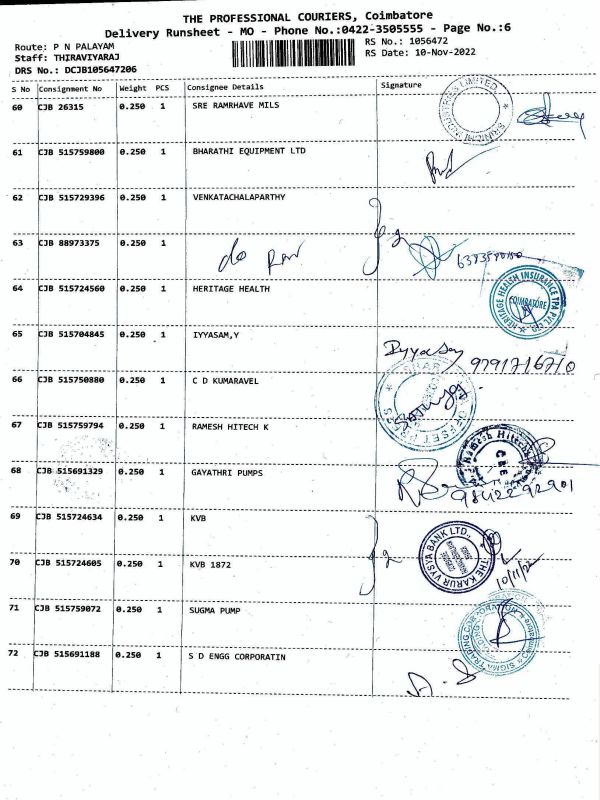 THE PROFESSIONAL COURIERS, Coimbatore
Delivery Runsheet - MO - Phone No.:0422-3505555 - Page No.:6
Route: P N PALAYAM RS No.: 1056472
Staff: THIRAVIYARAJ RS Date: 10-Nov-2022
DRS No.: DCJB105647206
S No Consignment No Weight PCS Consignee Details Signature
60 CJB 26315 0.250 1 SRE RAMRHAVE MILS
61 CJB 515759800 0.250 1 BHARATHI EQUIPMENT LTD
62 CJB 515729396 0.250 1 VENKATACHALAPARTHY
63 CJB 88973375 0.250 1
64 CJB 515724560 0.250 1 HERITAGE HEALTH
HERITAGE HEALTH INSURANCE TPA PVT. LTD.
COIMBATORE
65 CJB 515704845 0.250 1 IYYASAM,Y
Iyyasamy
9791716710
66 CJB 515750880 0.250 1 C D KUMARAVEL
OFFSET PRESS
67 CJB 515759794 0.250 1 RAMESH HITECH K
Ramesh Hitech
CBE
68 CJB 515691329 0.250 1 GAYATHRI PUMPS
9842292901
69 CJB 515724634 0.250 1 KVB
THE KARUR VYSYA BANK LTD.,
70 CJB 515724605 0.250 1 KVB 1872
10/11/22
71 CJB 515759072 0.250 1 SUGMA PUMP
SIGMA TRADING CORPORATION
72 CJB 515691188 0.250 1 S D ENGG CORPORATIN